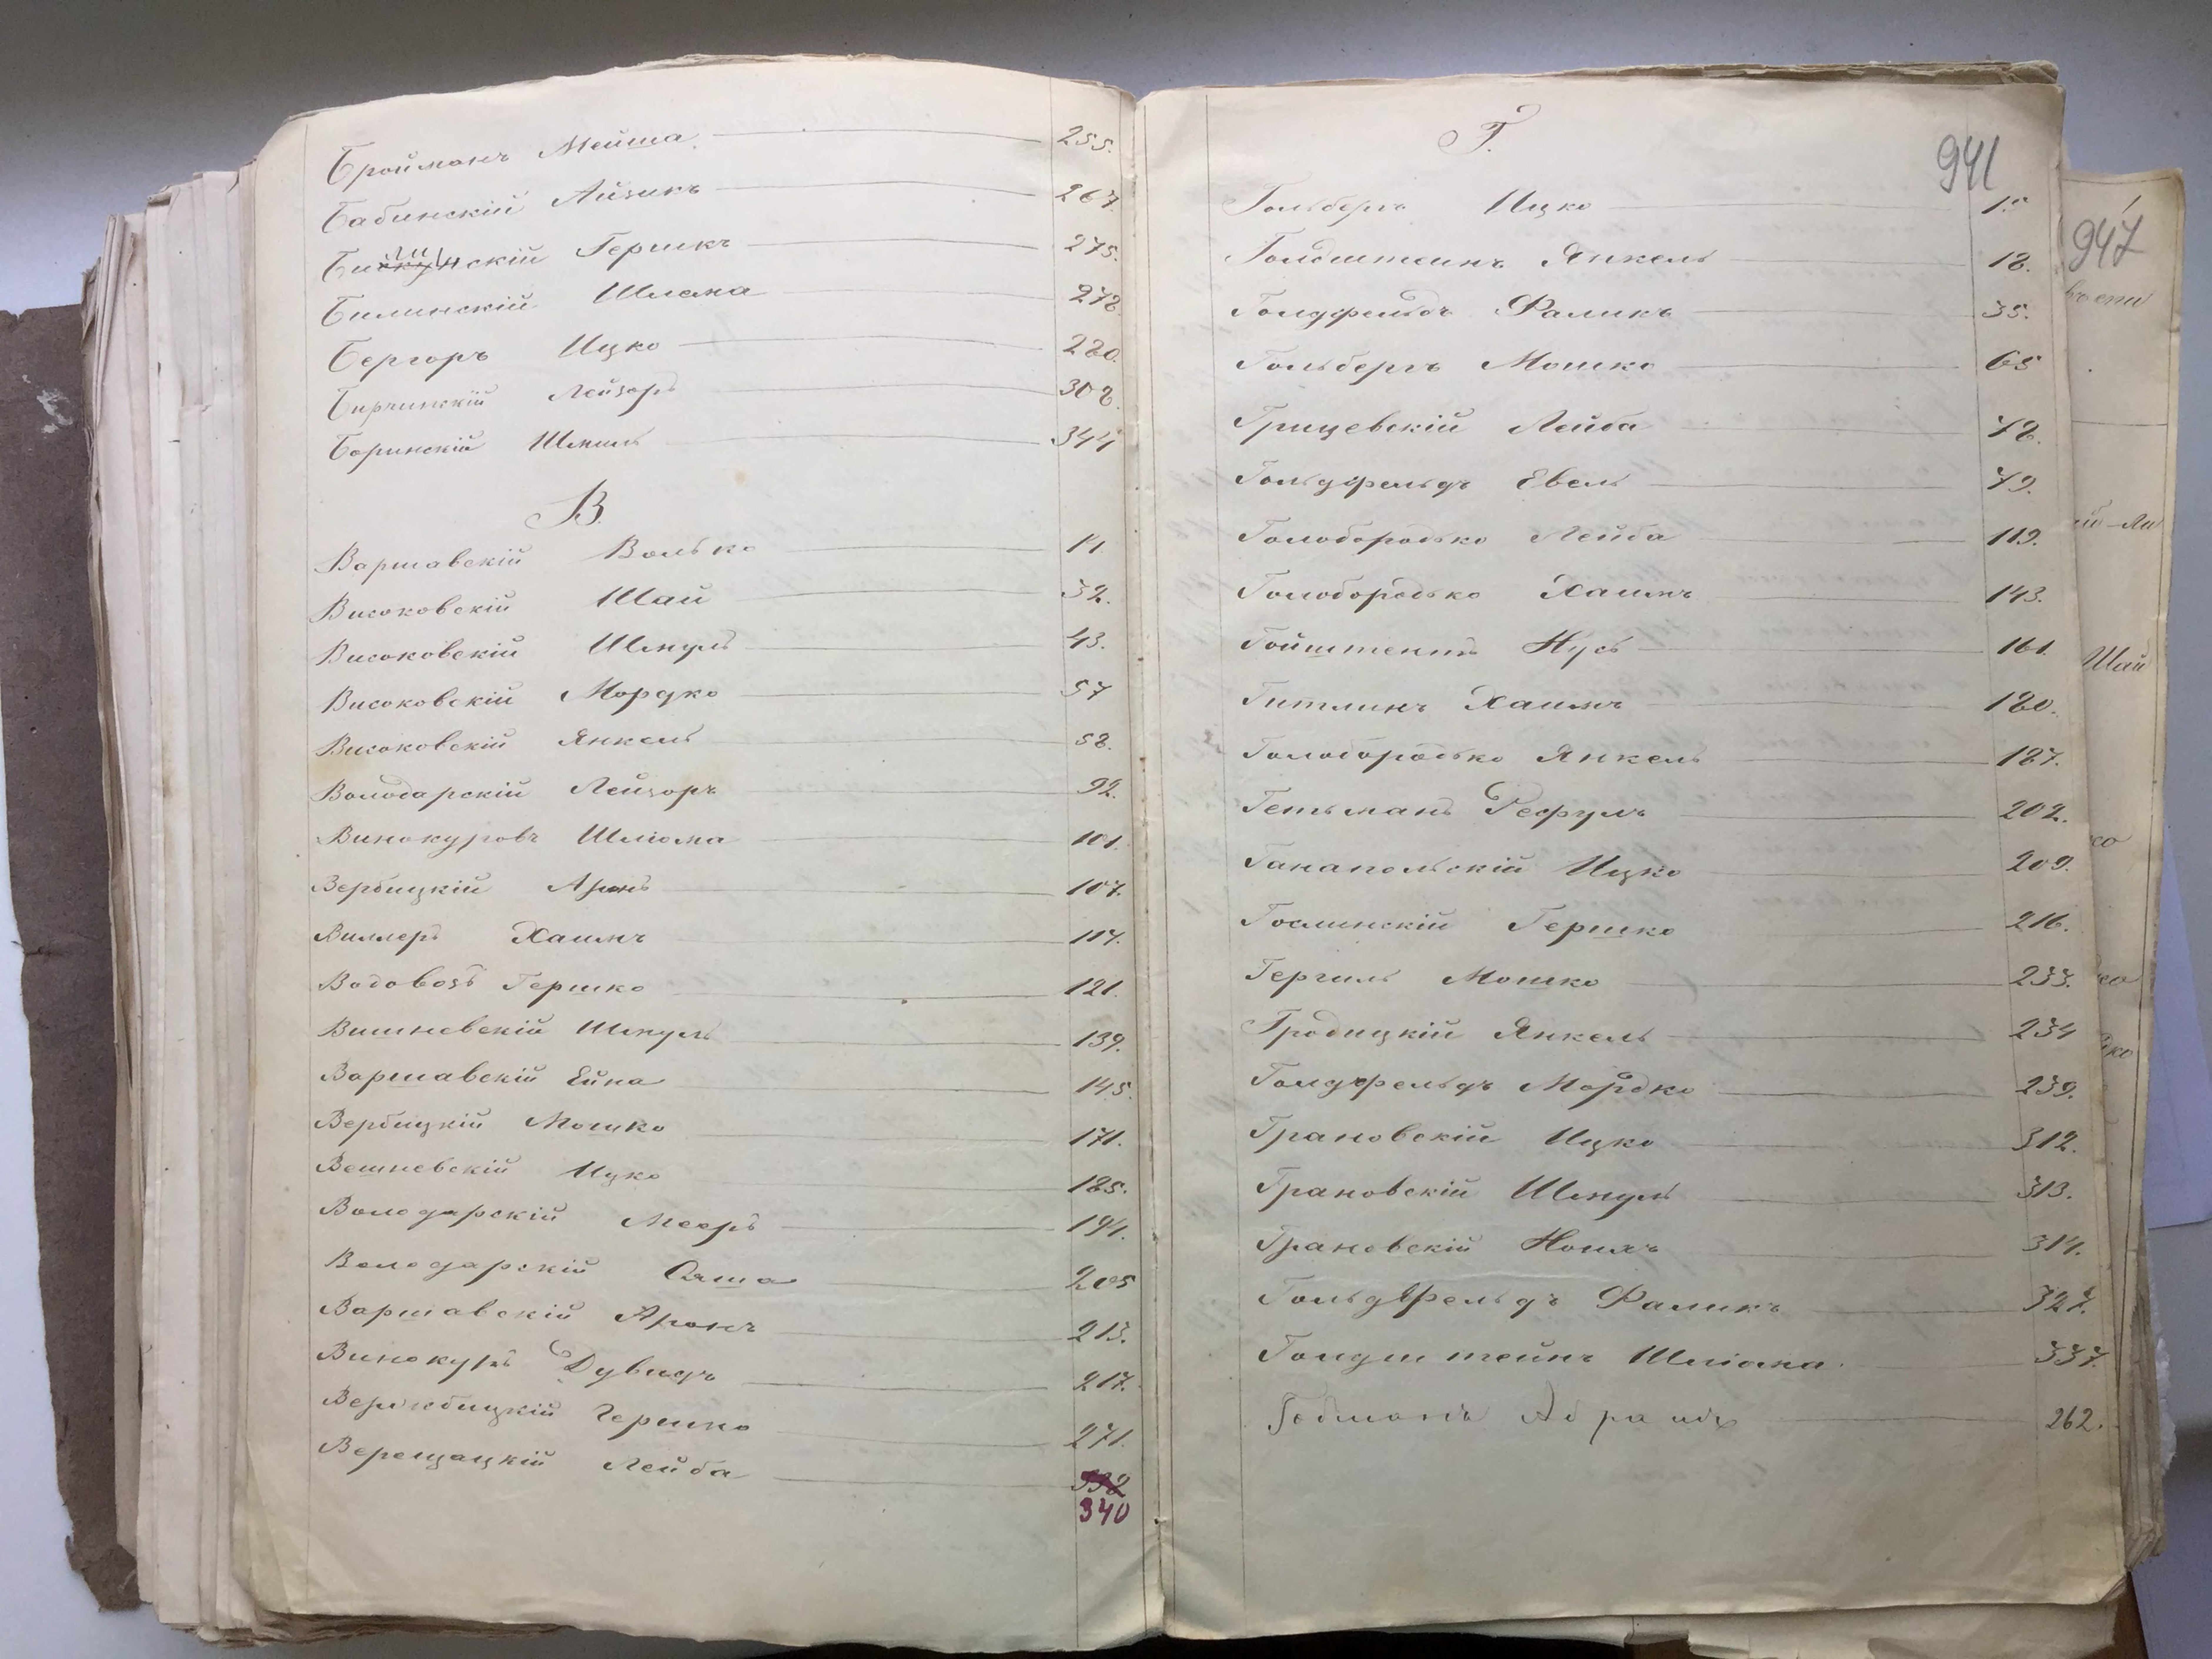 Бройманъ Мейша 255.
Бабинскій Айзикъ 267.
скій Гершкъ 275.
Билинскій Шлема 278.
Бергоръ Ицко 280.
Бирчинскій Лейзоръ 308.
Боринскій Шмиль 344
В.
Варшавскій Волько 14
Високовскій Шай 32.
Високовскій Шмуль 43.
Високовскій Мордко 57
Високовскій Янкель 58.
Володарскій Лейзоръ 92.
Винокуровъ Шліома 101.
Вербицкій Аронъ 107.
Виллеръ Хаимъ 117.
Водовозъ Гершко 121.
Вишневскій Шмуль 139.
Варшавскій Ейна 145.
Вербицкій Мошко 171.
Вешневскій Ицко 185.
Володарскій Мееръ 194.
Володарскій Сяша 205
Варшавскій Аронъ 213.
Винокуръ Дувидъ 217.
Вержбицкій Гершко 271.
Верещацкій Лейба 332
340
Г.
941
Гольберъ Ицко
Голдштеинъ Янкель 18.
Голдфельдъ Фаликъ 35.
Гольбергъ Мошко 65
Грицевскій Лейба 78.
Гольдфельдъ Евель 79.
Голобородько Лейба 119.
Голобородько Хаимъ 143.
Гойштентъ Нусь 161.
Гитлинъ Хаимъ 180.
Голобородько Янкель 187.
Гетьманъ Рефулъ 202.
Ганапольскій Ицко 209.
Гослинскій Гершко 216.
Гергиль Мошко 233.
Гродицкій Янкель 234
Голдфельдъ Мордко 239.
Грановскій Ицко 312.
Грановскій Шмуль 313.
Грановскій 314.
Гольдфельдъ Фаликъ 327.
Голдштейнъ Шліома. 337.
Абрамъ 262.
947
Шай